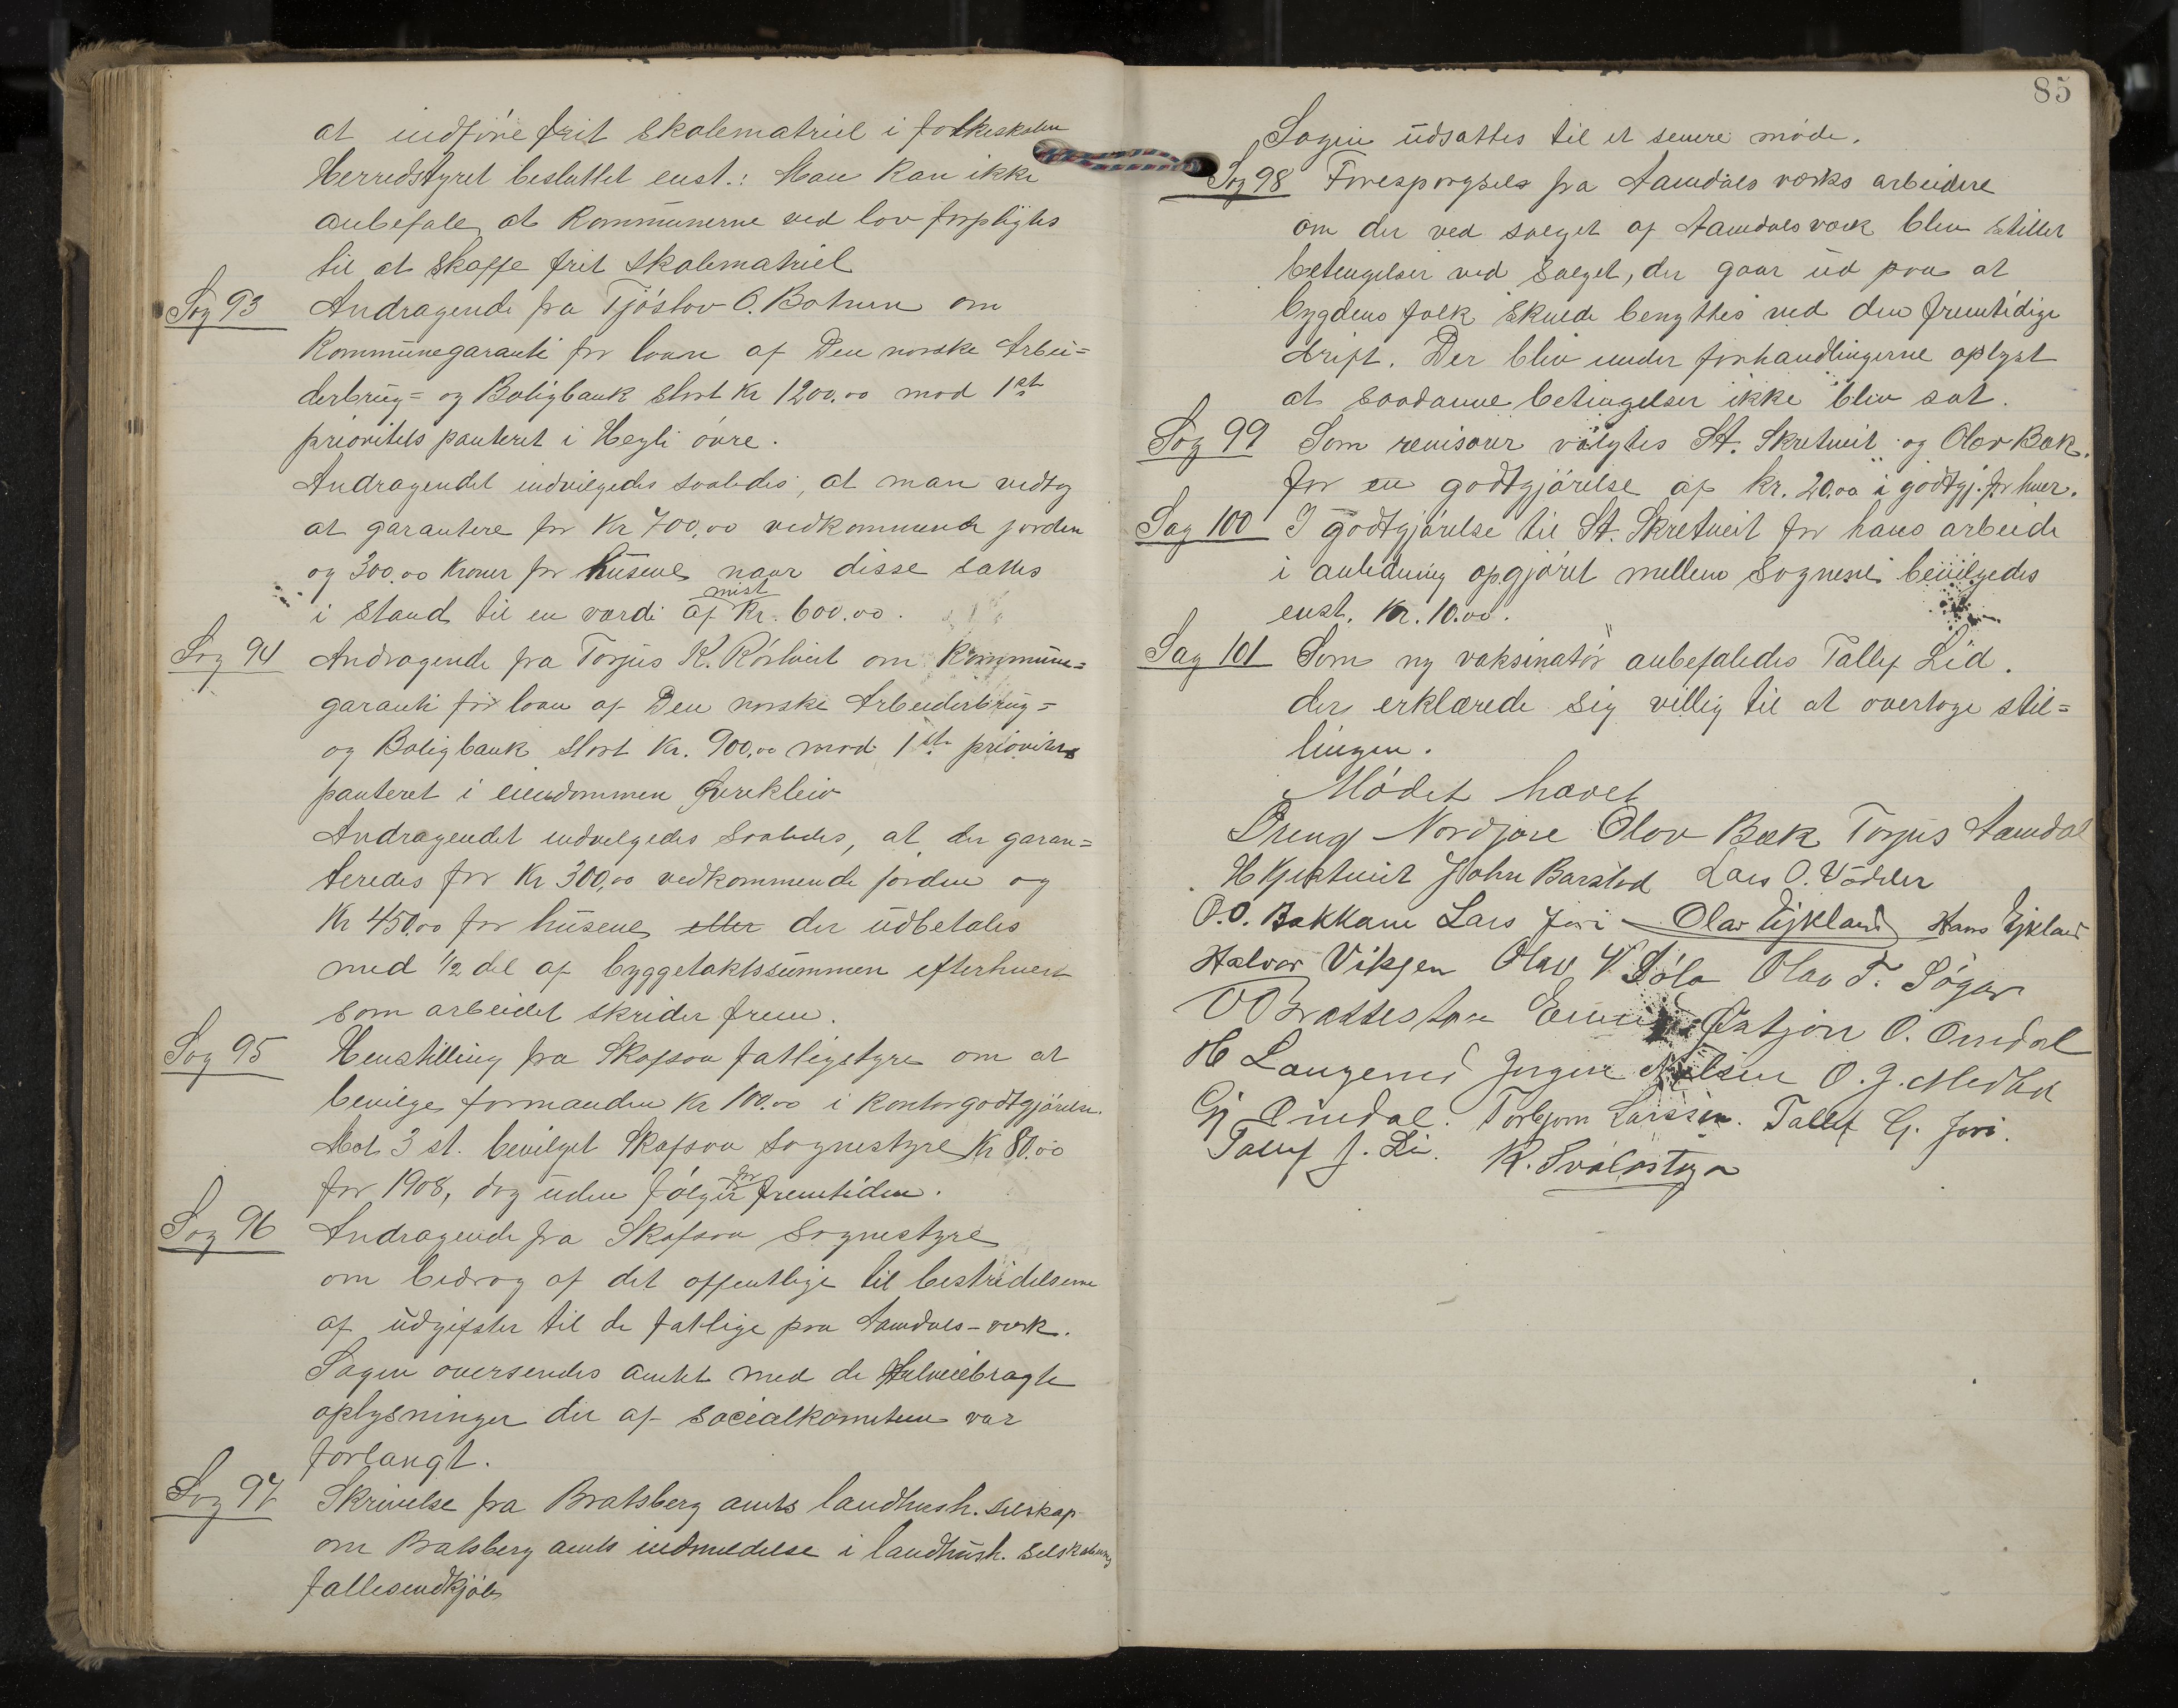 at indføre frit skolematriel i folkeskolen
Herredstyret besluttet enst.: Man kan ikke
anbefale at kommunerne ved lov forpligtes
til at skaffe frit skolematriel
Sag 93 Andragende fra Tjóstov O. Botnen om
Kommunegaranti for laan af Den norske Arbei=
derbrug= og Boligbank stort Kr 1200.00 mod 1ste
prioritets panteret i Hegli óvre.
Andragendet indvilgedes saaledes, at man vedtog
at garantere for Kr 700,00 vedkommende jorden
og 300.00 Kroner for húsene naar disse sattes
i stand til en værdi af mist Kr. 600.00.
Sag 94 Andragende fra Torjus K. Rórtveit om Kommune=
garanti for laan af Den norske Arbeiderbrug=
og Boligbank stort Kr. 900,00 mod 1ste prioritets
panteret i eiendommen
Andragendet indvelgedes saaledes, at der garan=
teredes for Kr 300,00 vedkommende jorden og
Kr 450.00 for húsene eller der údbetales
med 1/2 del af byggetaktssummen efterhvert
som arbeidet skrider frem.
Sag 95 Henstilling fra Skafsaa fattigstyre om at
bevilge formanden Kr 100.00 i kontorgodtgjórelse.
Mot 3 st. bevilget Skafsaa sognestyre Kr 80.00
for 1908, dog uden fólger for fremtiden.
Sag 96 Andragende fra Skafsaa Sognestyre
om bidrag af det offentlige til bestridelserne
af údgifter til de fattige paa Aamdals-verk.
Sagen oversendes amtet med de tilveiebragte
oplysninger der af socialkomiteen var
forlangt.
Sag 97 Skrivelse fra Bratsberg amts landhush. selskap
om Bratsberg amts indmeldelse i landhúsh. selskabernes
fællesindkjób
85
Sagen údsattes til et senere móde.
Sag 98 Forespørgsels fra Aamdals værks arbeidere
om der ved salget af Aamdals værk blev stillet
betingelser ved salget, der gaar úd paa at
bygdens folk skulde benyttes ved den fremtidige
drift. Der blev under forhandlingerne oplyst
at saadanne betingelser ikke blev sat.
Sag 99 Som revisorer valgtes St. Skretveit og Olav Bæk.
for en godtgjórelse af kr. 20.00 i godtgj. for hver.
Sag 100 I godtgjórelse til St. Skretveit for hans arbeide
i anledning opgjóret mellem Sognene bevilgedes
enst. Kr. 10.00.
Sag 101 Som ny vaksinatór anbefaledes Tallef Lid.
der erklærede sig villig til at overtage stil=
lingen.
Módet hævet
Dreng Nordjore Olav Bæk Torjus Aamdal
John Barstad Lars O.
O.O. Bakkane Lars Jori Olav Eikland Hans Eikland
Halvor Vihjen Olav V Dóla Olav T.
O Brattestaa O. Omdal
H Langemid Jorgen Nilsen O. J.
Gj Omdal. Torbjorn Larssen. Tallef G. Jori.
Tallef J. Li. K. Svalastoga